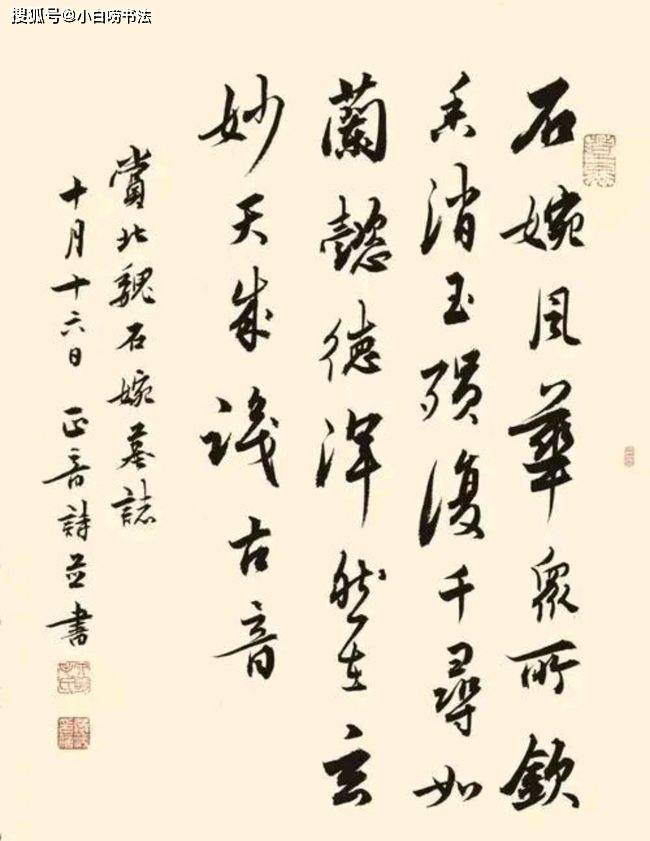 搜狐号@小白唠书法
石婉風華眾所欽
香消玉殞復千尋如
蘭懿德渾然在玄
妙天成識古音
賞北魏石婉墓誌
十月十六日 正音詩並書